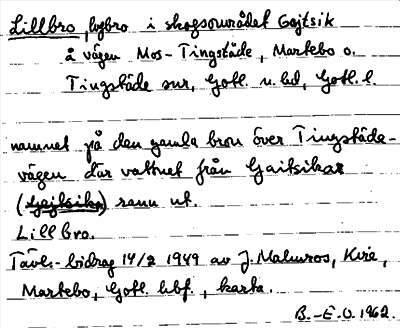 Lillbro, vägbro i skogsområdet Gajtsik
å vägen Mos-Tingstäde, Martebo o.
Tingstäde snr, Gotl. n. hd, Gotl. l.
namnet på den gamla bron över Tingstäde-
vägen där vattnet från Gaitsikar
(Gajtsik) rann ut.
Lillbro.
Tävl.-bidrag 14/2 1949 av J. Malmros, Kvie,
Martebo, Gotl. hbf., karta.
B.-E. O. 1962.